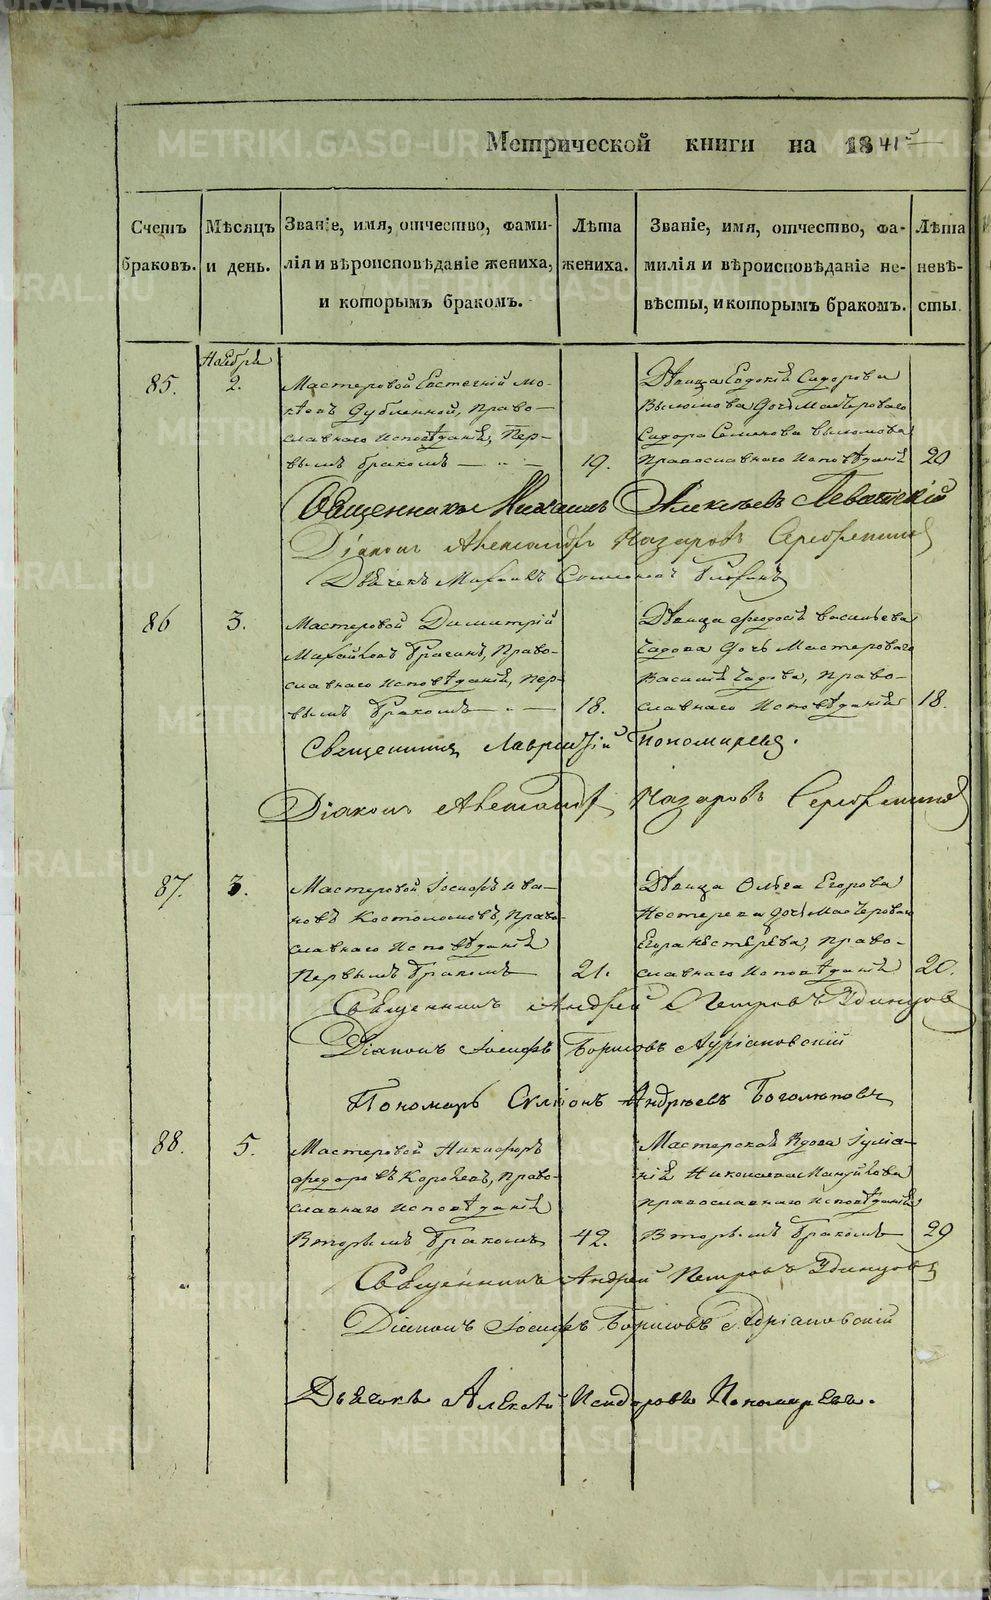 Метрической книги на 1841й
Счетъ браковъ.
Мѣсяцъ и день.
Званіе, имя, отчество, фами-
лія и вѣроисповѣданіе жениха,
и которымъ бракомъ.
Лѣта
жениха.
Званіе, имя, отчество, фа-
милія и вѣроисповѣданіе не-
вѣсты, и которымъ бракомъ.
Лѣта
невѣ-
сты.
Ноября
85.
2.
Мастеровой Евстегнiй Мо-
Православнаго исповѣданія, Пер-
вымъ бракомъ
19.
Дѣвица Сидорова
дочь Мастероваго
Сидора Семенова
Православнаго исповѣданія
20
Священникъ Михаилъ Алексѣевъ Левитскій
Діаконъ Александръ Назаровъ Серебренниковъ
Дьячекъ Михаилъ
86
3.
Мастеровой Димитрій
Михайловъ Брагинъ, Право-
славнаго исповѣданія, пер-
вымъ бракомъ
18.
Дѣвица Феодосья Васильева
Чадова дочь Мастероваго
Василья Чадова, Право-
славнаго исповѣданія
18.
Священникъ Лаврентій Пономаревъ.
Діаконъ Александръ Назаровъ Серебренниковъ
87.
3.
Мастеровой Іосифъ Ива-
новъ Костоломовъ, Право-
славнаго исповѣданія
Первымъ бракомъ
21.
Дѣвица Ольга Егорова
Нестерева дочь Мастероваго
Егора Нестерева, Право-
славнаго исповѣданія
20.
Священникъ Андрей Петровъ Удинцовъ
Діаконъ Іосифъ Борисовъ Адріановскій
Пономарь Симіонъ Андрѣевъ Боголѣповъ
88.
5.
Мастеровой Никифоръ
Федоровъ Королевъ, Право-
славнаго исповѣданія
Вторымъ бракомъ
42.
Мастерская Вдова Іулиа-
нія Николаева
Православнаго исповѣданія
Вторымъ бракомъ
29
Священникъ Андрей Петровъ Удинцовъ
Діаконъ Іосифъ Борисовъ Адріановскій
Дьячекъ Алексѣй Исидоровъ Пономаревъ.
METRIKI.GASO-URAL.RU